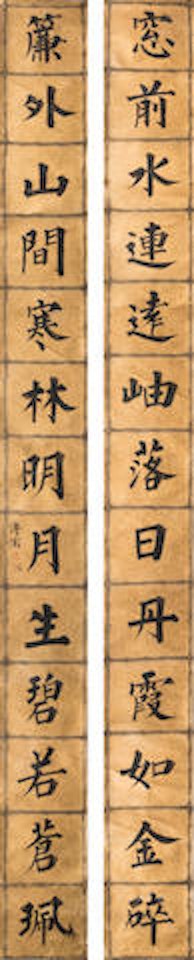 窓前水連遠岫落日丹霞如金碎
簾外山間寒林明月生碧若蒼珮